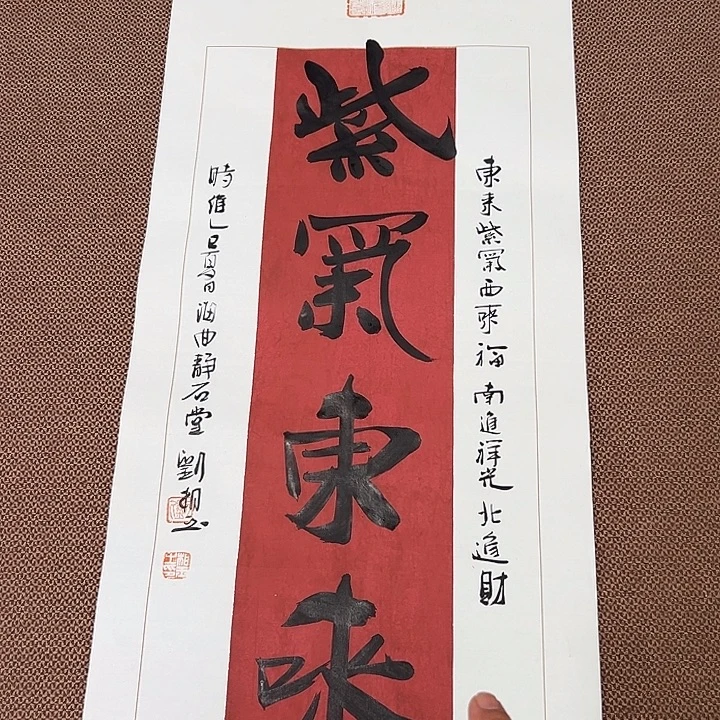 東来紫氣西來福南進祥光北進財
紫氣東來
時維乙巳夏日海曲靜石堂劉